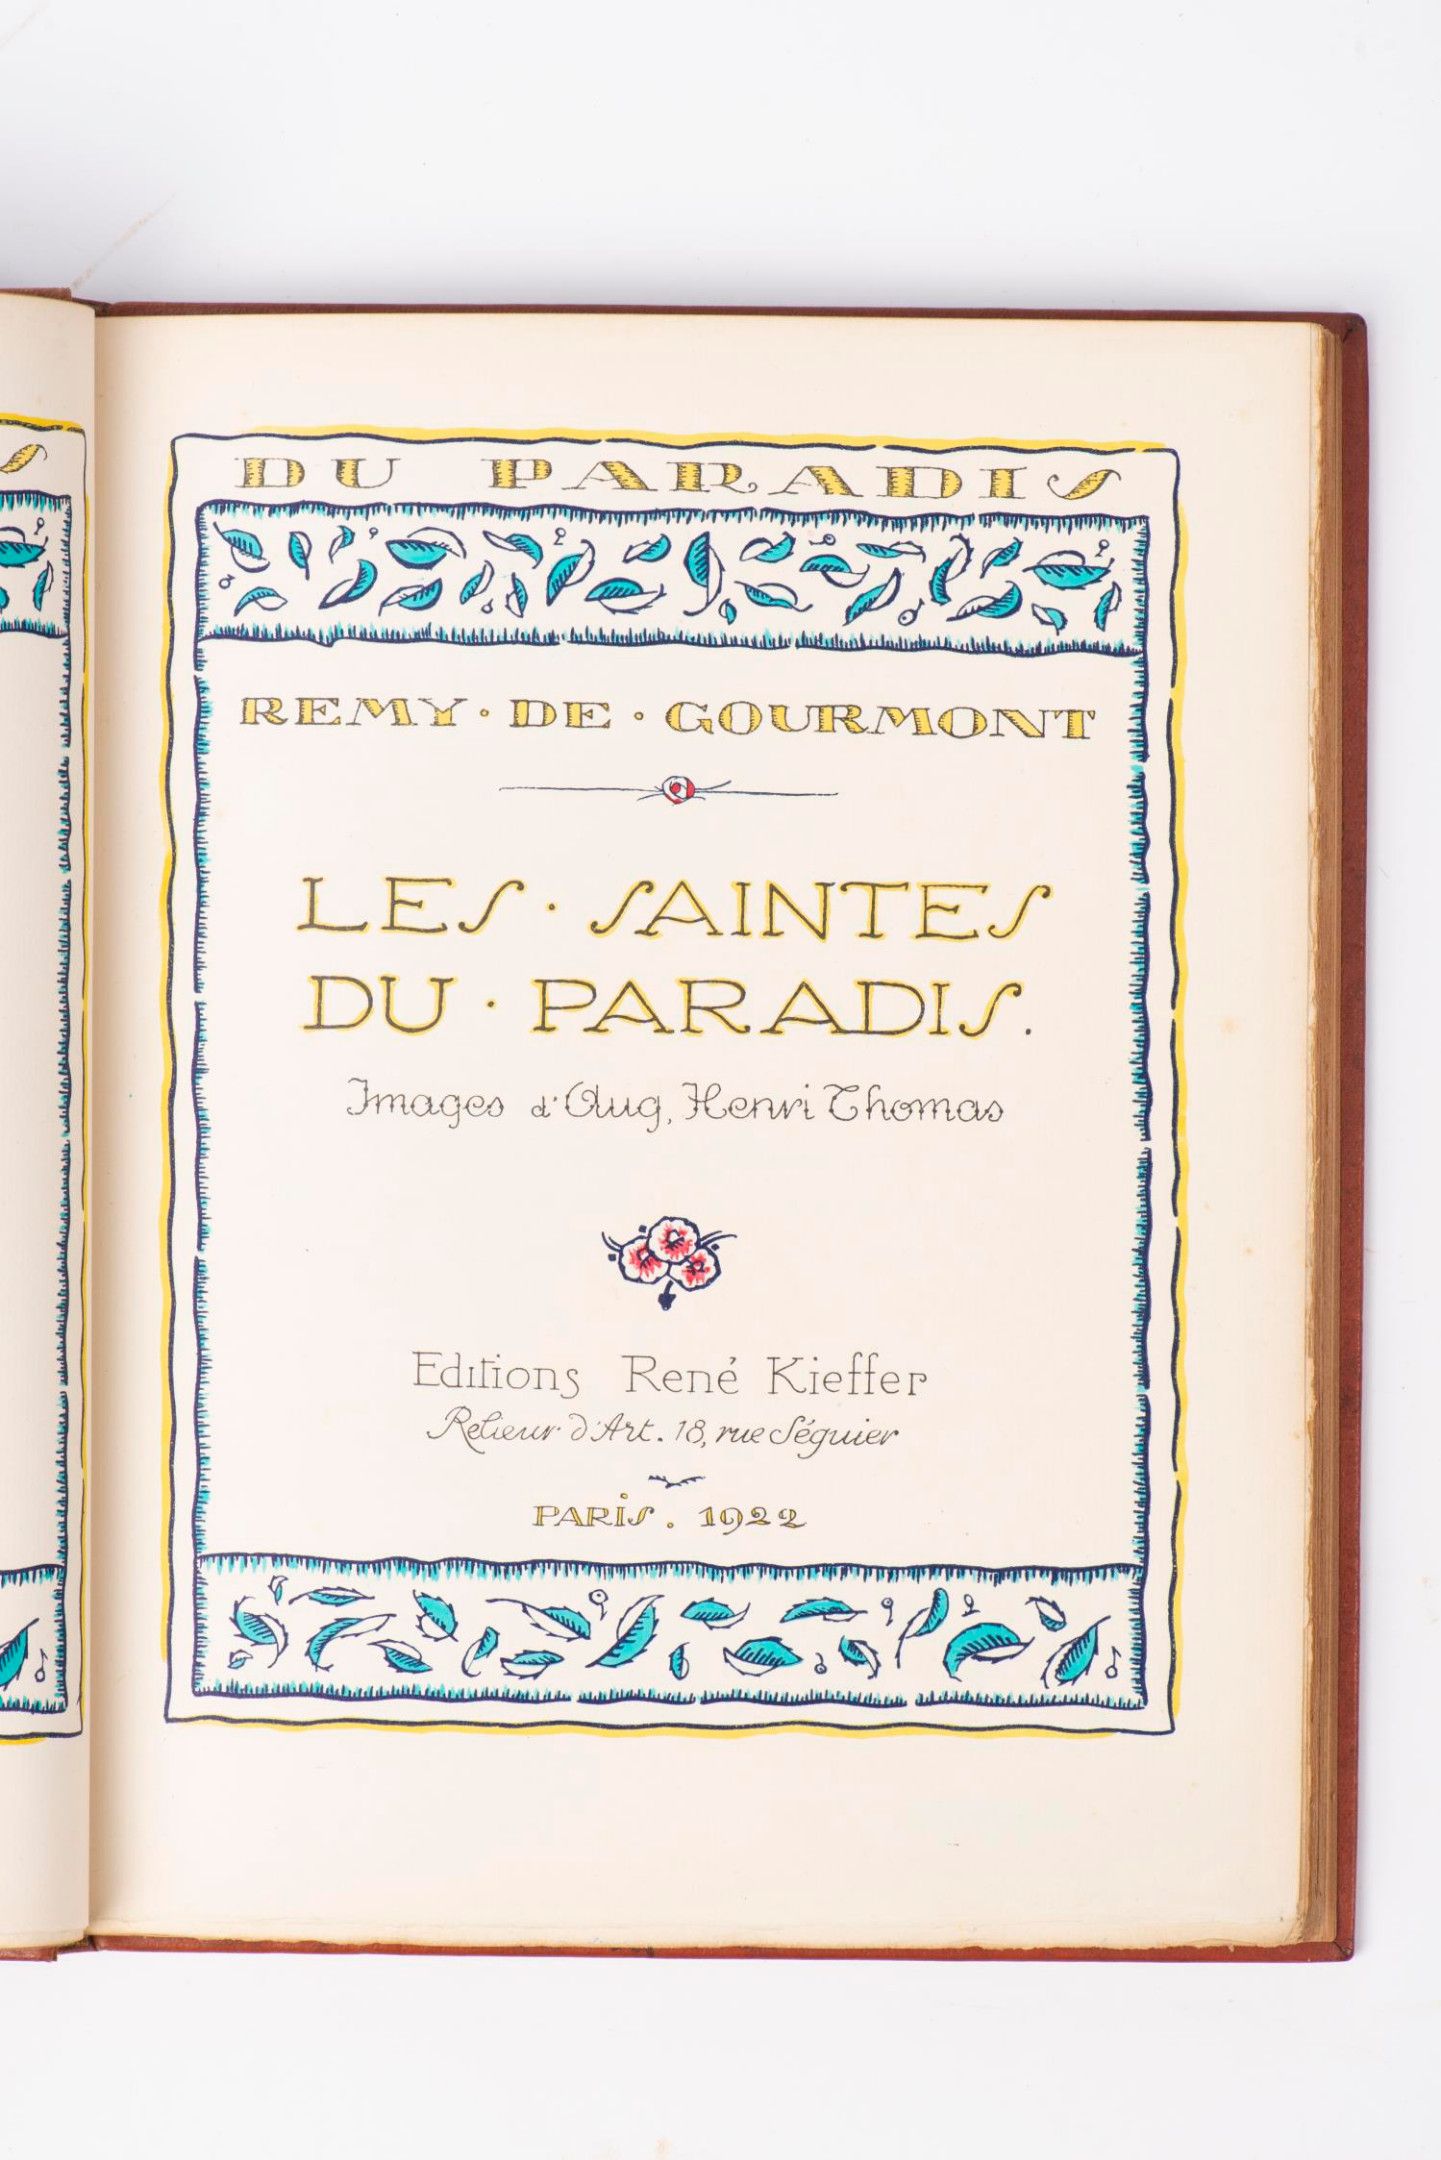 S
DU PARADIS
REMY · DE · GOURMONT
LES · SAINTES
DU · PARADIS.
Images d'Aug, Henri Thomas
Editions René Kieffer
Relieur d'Art. 18, rue Séguier
PARIS. 1922